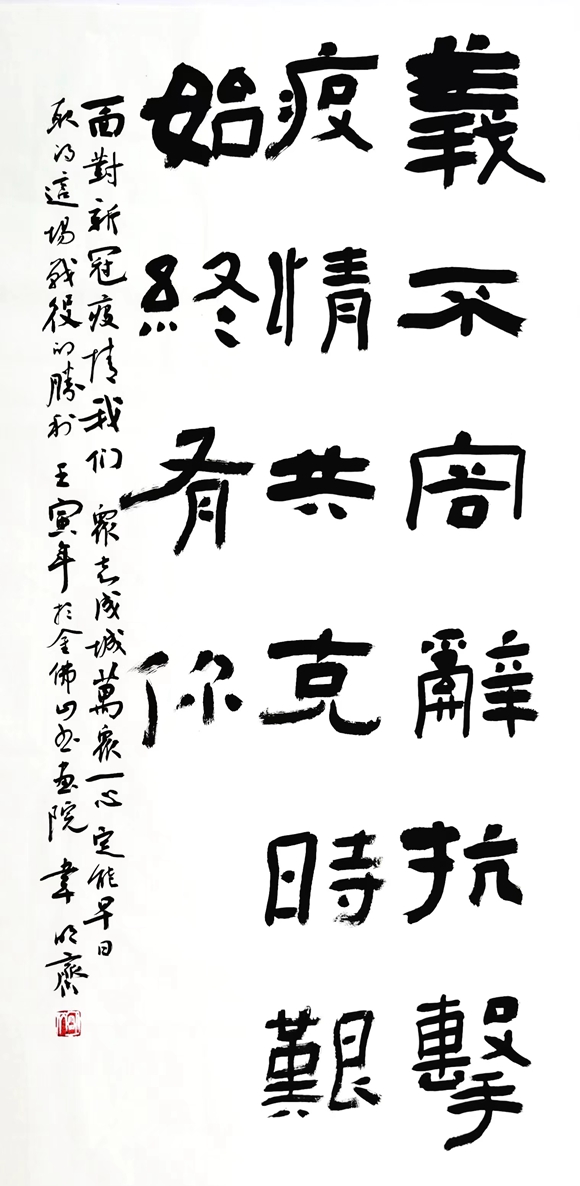 義不容辭抗擊
疫情共克時艱
始終有你
面對新冠疫情我们眾志成城萬眾一心定能早日
取得這場戰役的勝利 壬寅年於金佛山书画院 韋明齋